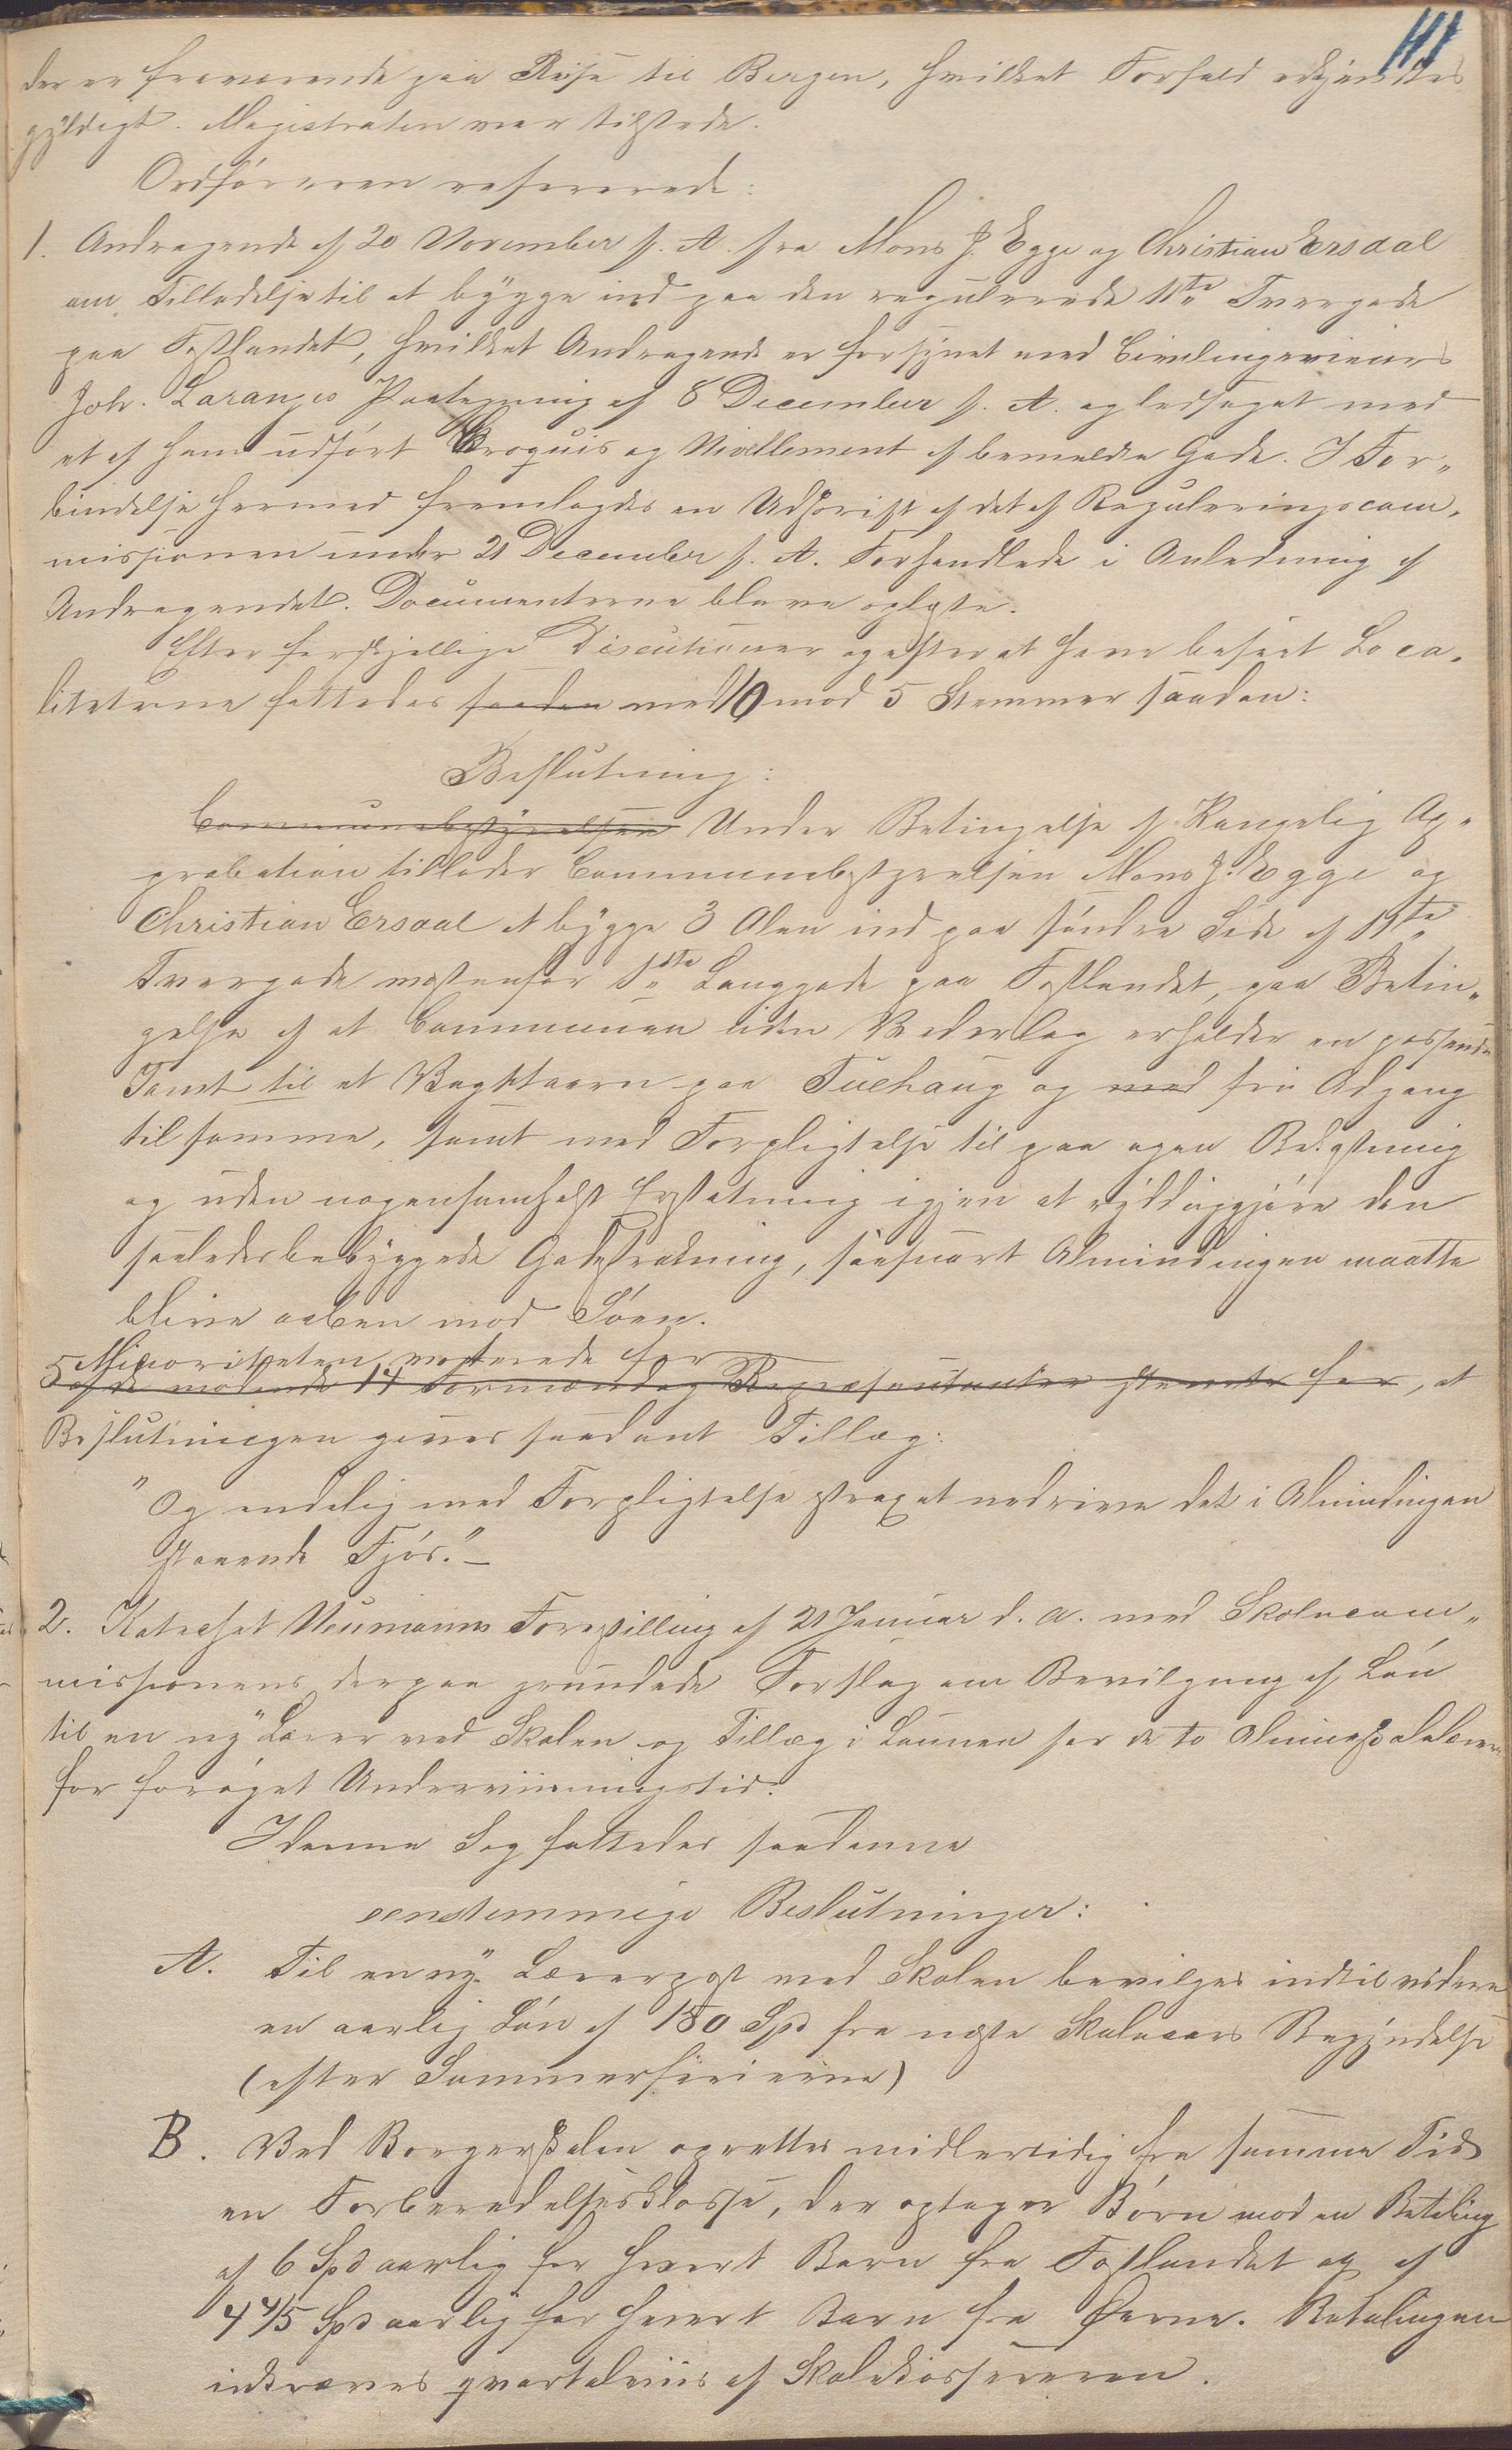 141
der er fraværende paa Reise til Bergen, hvilket Forfald erkjendtes
gyldigt. Magistraten var tilstede.
Ordføreren refererede:
1. Andragende af 20 November f. A. fra Mons J. Egge og Christian Ersdal
om Tilladelse til at bygge ind paa den regulerede 11te Tvergade
paa Fastlandet, hvilket Andragende er forsynet med Civilingenieur
Joh. Laranges Paategning af 8 December f. A. og ledsaget med
et af ham udført Croquis og Nivellement af bemeldte Gade. I For-
bindelse hermed fremlagdes en Udskrift af det af Reguleringscom-
missionen under 21 December f. A. Forhandlede i Anledning af
Andragendet. Documenterne bleve oplæste.
Efter forskjellige Discutioner og efter at have beseet Loca-
liteterne fattedes saadan med 10 mod 5 Stemmer saadan:
Beslutning:
Communebestyrelsen Under Betingelse af Kongelig Ap-
probation tillader Communebestyrelsen Mons J. Egge og
Christian Ersdal at bygge 3 Alen ind paa søndre Side af 11te
Tvergade vestenfor 1ste Langgade paa Fastlandet, paa Betin-
gelse af at Communen uden Vederlag erholder en passende
Tomt til et Vagttaarn paa Tuehaug og med fri Adgang
til samme, samt med Forpligtelse til paa egen Bekostning
og uden nogensomhelst Erstatning igjen at ryddiggjøre den
saaledes bebyggede Gadestrækning, saasnart Almindingen maatte
blive aaben mod Søen.
Minoriteten voterede for
5 af de mødende 14 Formænd og Repræsentanter stemte for, at
Beslutningen gives saadant Tillæg:
"Og endelig med Forpligtelse strax at nedrive det i Almindingen
staaende Fjøs."
2. Katechet Neumanns Forestilling af 21 Januar d. A. med Skolecom-
missionens derpaa grundede Forslag om Bevilgning af Løn
til en ny Lærer ved Skolen og Tillæg i Lønnen for de to Almueskolelærere
for forøget Underviisningstid.
I denne Sag fattedes saadanne
eenstemmige Beslutninger:
A. Til en ny Lærerpost ved Skolen bevilges indtil videre
en aarlig Løn af 180 Spd fra næste Skoleaars Begyndelse
(efter Sommerferierne)
B. Ved Borgerskolen oprettes midlertidig fra samme Tid
en Forberedelsesklasse, der optager Børn mod en Betaling
af 6 Spd aarlig for hvert Barn fra Fastlandet og af
4 4/5 Spd aarlig for hvert Barn fra Øerne. Betalingen
indkræves qvartalviis af Skolekassereren.